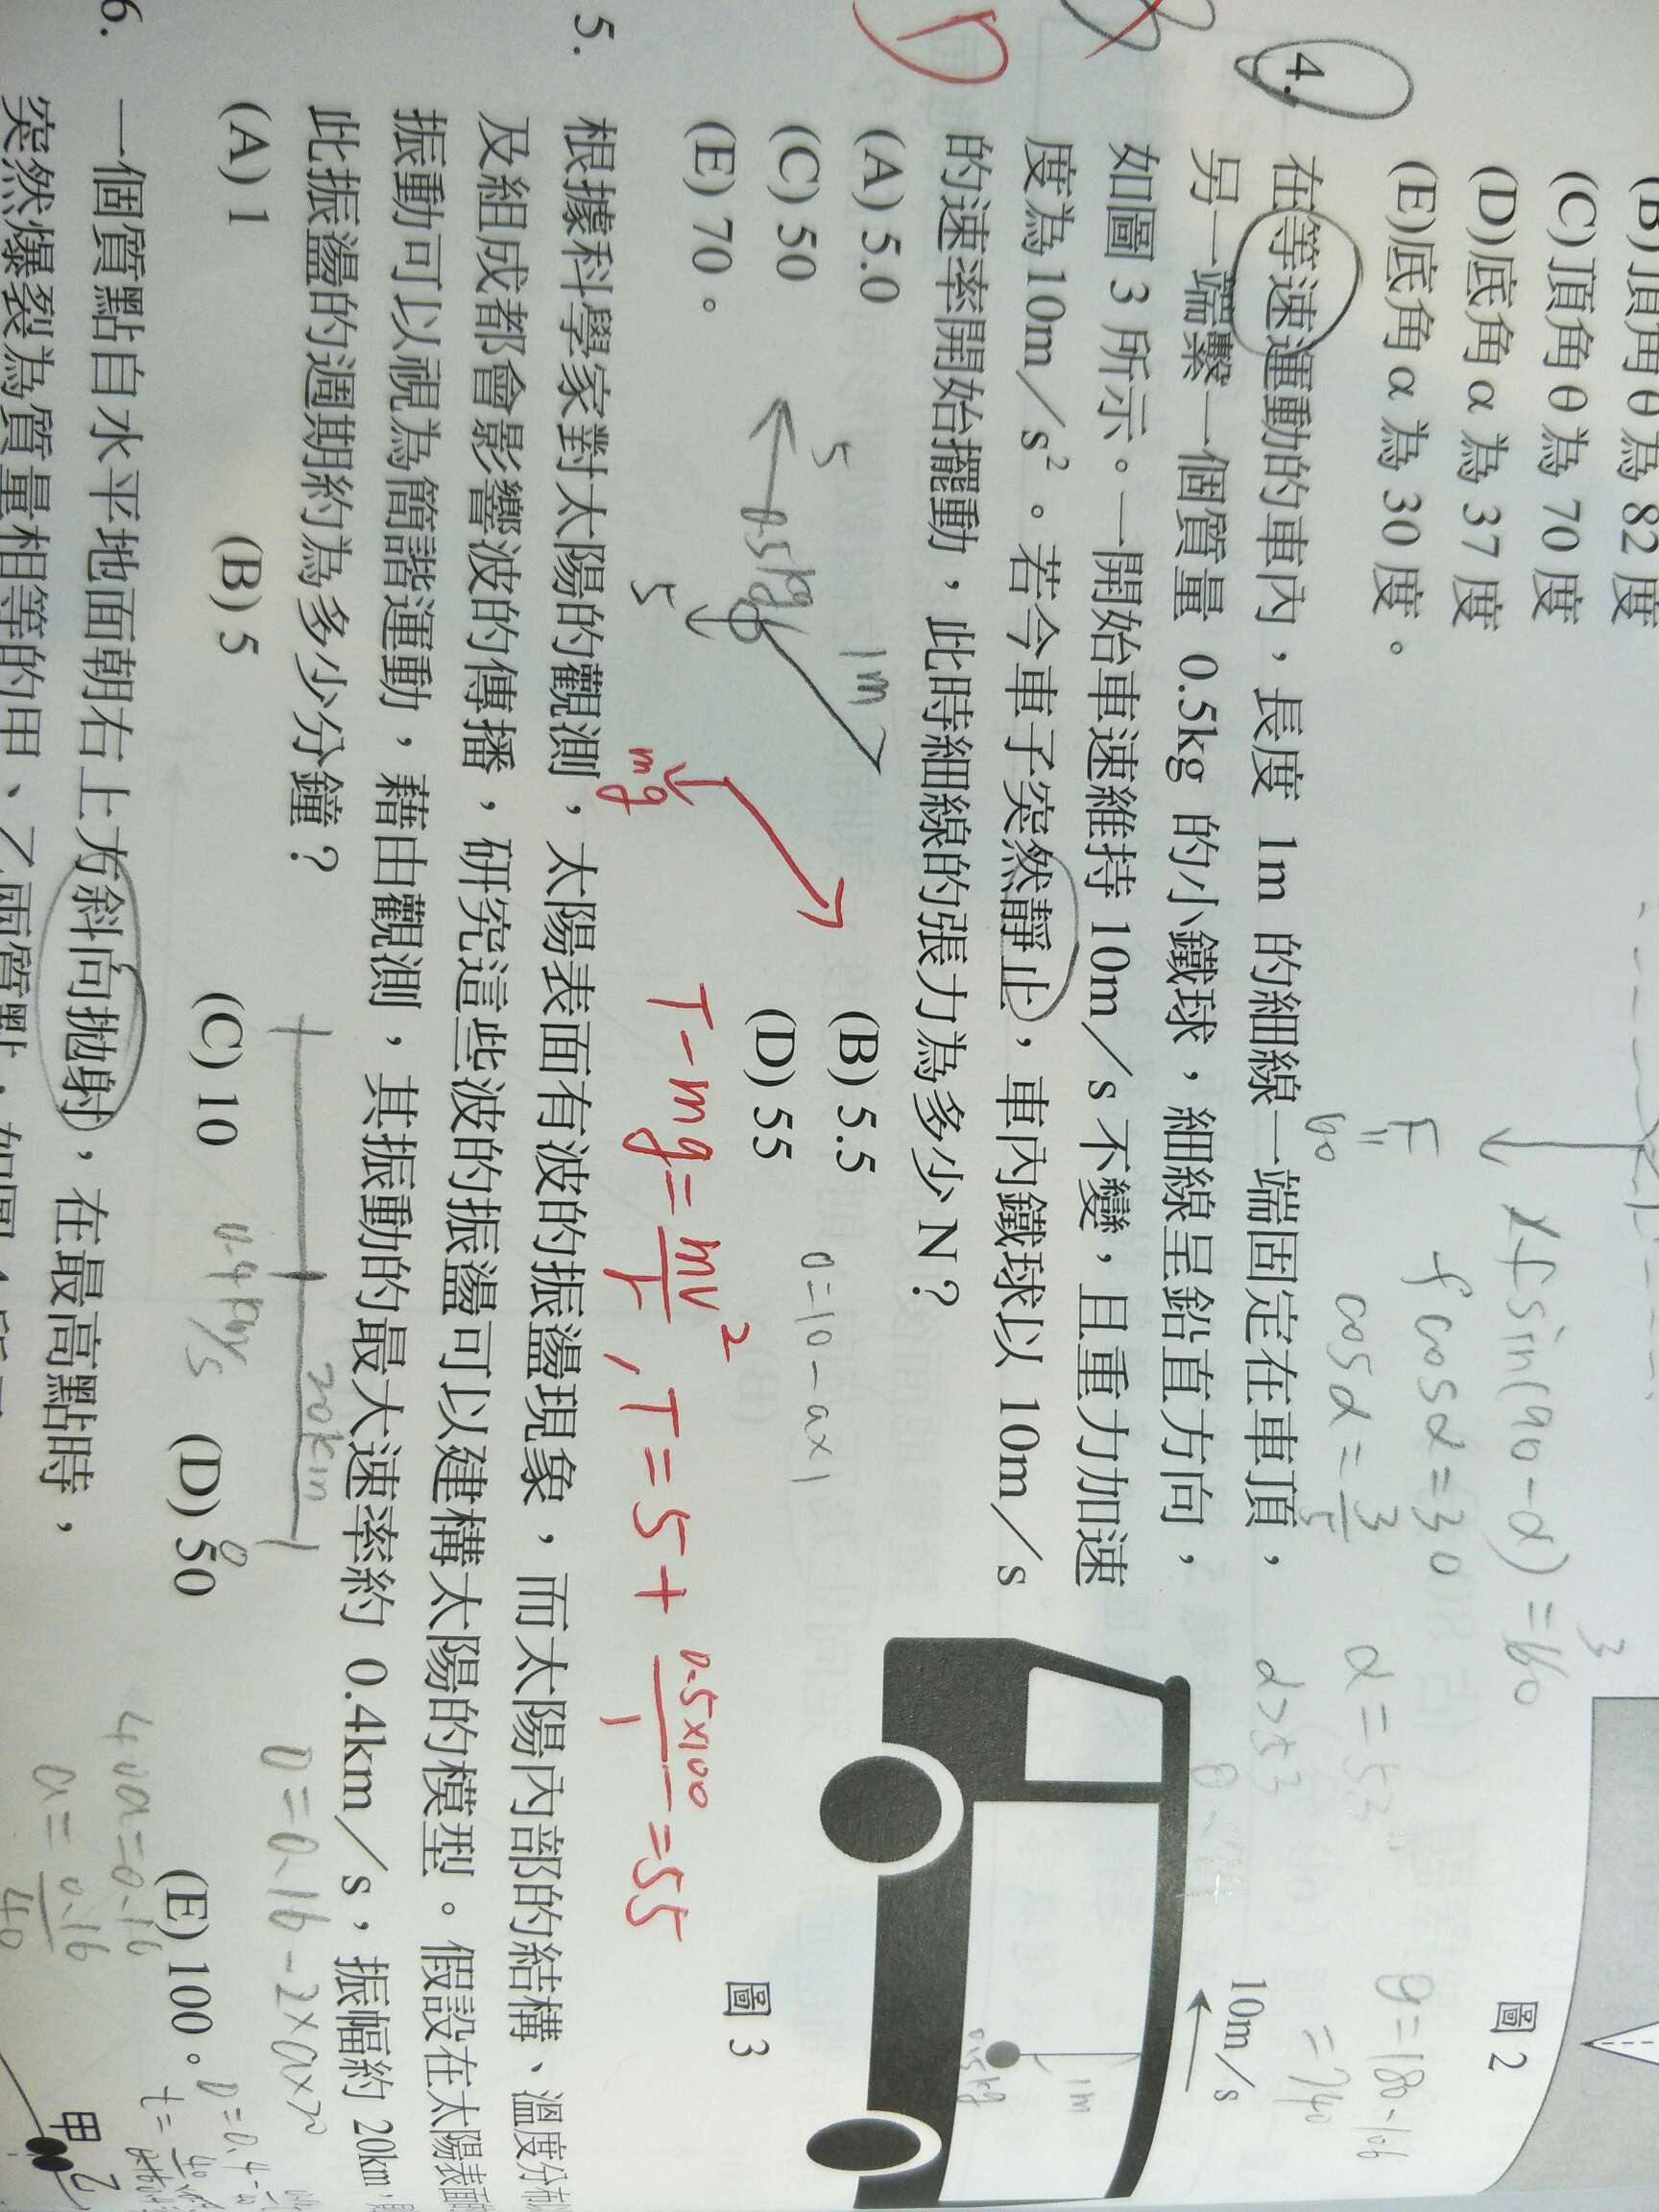 (B)頂角θ為 82 度
(C)頂角θ為 70 度
(D)底角α為 37 度
(E)底角α為 30 度。
圖 2
f sin(90-α) = 
f cosα = 30
cosα = 3/5
α = 53°
α > 53
θ = 180 - 106
= 74°
4. 在等速運動的車內，長度 1m 的細線一端固定在車頂，
另一端繫一個質量 0.5kg 的小鐵球，細線呈鉛直方向，
如圖 3 所示。一開始車速維持 10m／s 不變，且重力加速
度為 10m／s²。若今車子突然靜止，車內鐵球以 10m／s
的速率開始擺動，此時細線的張力為多少 N？
(A) 5.0 (B) 5.5
(C) 50 (D) 55
(E) 70。
10m／s
1m
0.5kg
圖 3
5
1m
0.5kg
5
0=10-a×1
mg
T-mg=mv²/r , T=5+0.5×100/1=55
5. 根據科學家對太陽的觀測，太陽表面有波的振盪現象，而太陽內部的結構、溫度分布
及組成都會影響波的傳播，研究這些波的振盪可以建構太陽的模型。假設在太陽表面
振動可以視為簡諧運動，藉由觀測，其振動的最大速率約 0.4km／s，振幅約 20km，則
此振盪的週期約為多少分鐘？
(A) 1 (B) 5 (C) 10 (D) 50 (E) 100。
20km
0.4km/s
0=0.16-2×a×20
40a=0.16
a=0.16/40
6. 一個質點自水平地面朝右上方斜向拋射，在最高點時，
突然爆裂為質量相等的甲、乙兩質點，如圖 4 所示
甲 乙